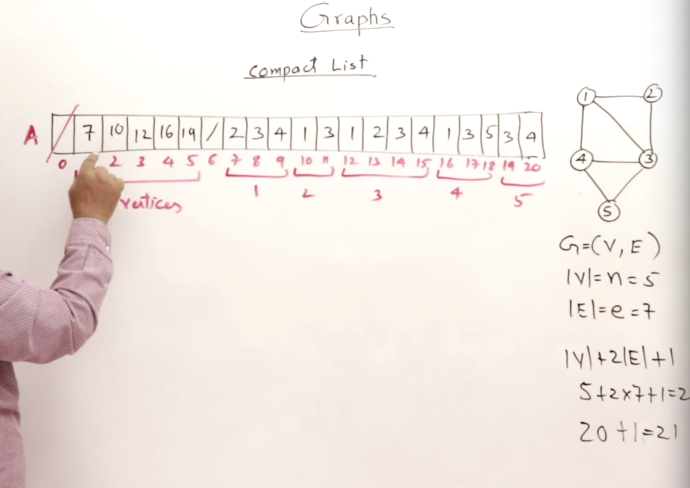 Graphs
Compact List
A / 7 10 12 16 19 / 2 3 4 1 3 1 2 3 4 1 3 5 3 4
0 2 3 4 5 6 7 8 9 10 11 12 13 14 15 16 17 18 19 20
vertices 1 2 3 4 5
1 2
4 3
5
G=(V,E)
|V|=n=5
|E|=e=7
|V|+2|E|+1
5+2×7+1=2
20+1=21